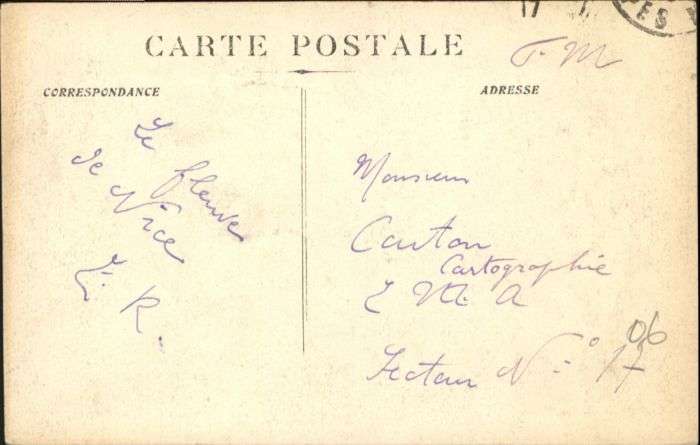 17
ES
CARTE POSTALE
F. M
CORRESPONDANCE
ADRESSE
Le fleuve
de Nice
E. R.
Monsieur
Canton
Cartographie
E M A
Secteur N° 17
06